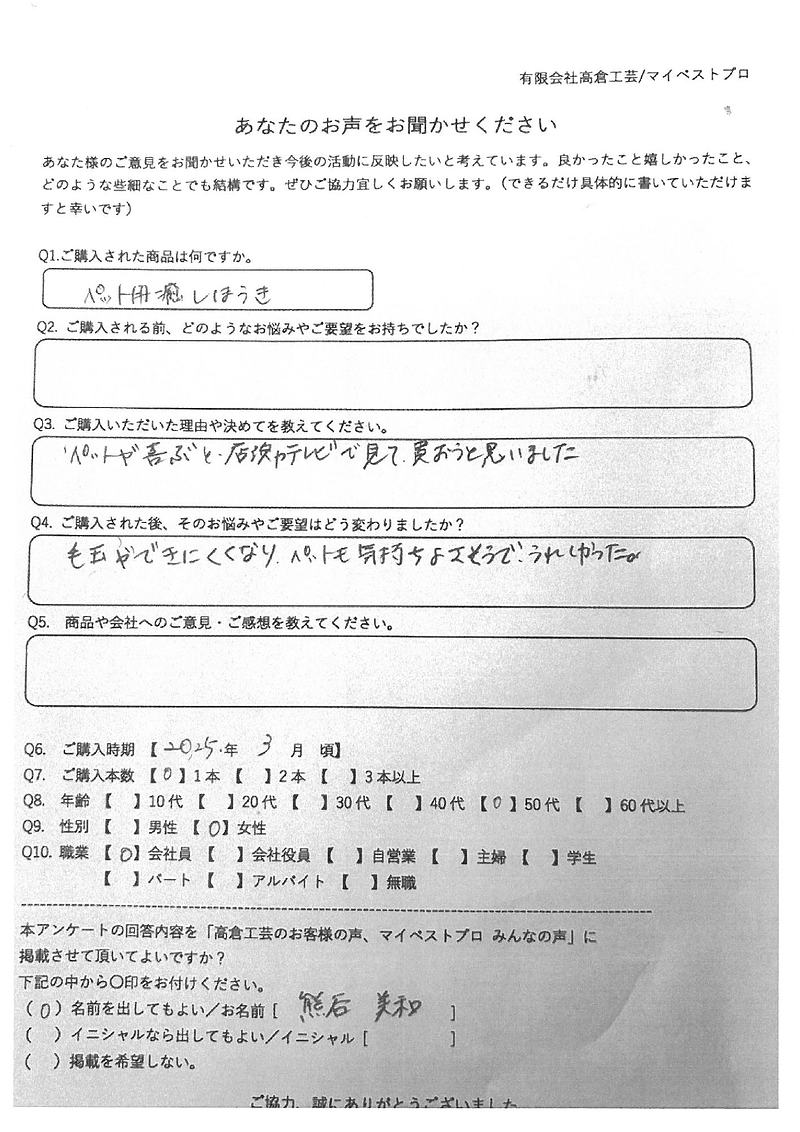 有限会社高倉工芸/マイベストプロ
あなたのお声をお聞かせください
あなた様のご意見をお聞かせいただき今後の活動に反映したいと考えています。良かったこと嬉しかったこと、
どのような些細なことでも結構です。ぜひご協力宜しくお願いします。（できるだけ具体的に書いていただけま
すと幸いです）
Q1.ご購入された商品は何ですか。
ペット用癒しほうき
Q2. ご購入される前、どのようなお悩みやご要望をお持ちでしたか？
Q3. ご購入いただいた理由や決めてを教えてください。
ペットが喜ぶと、店頭のテレビで見て、買おうと思いました
Q4. ご購入された後、そのお悩みやご要望はどう変わりましたか？
毛玉ができにくくなり、ペットも気持ちよさそうで、うれしかった。
Q5. 商品や会社へのご意見・ご感想を教えてください。
Q6. ご購入時期 【 2025 年 3 月 頃】
Q7. ご購入本数 【 0 】1本 【 】2本 【 】3本以上
Q8. 年齢 【 】10代 【 】20代 【 】30代 【 】40代 【 0 】50代 【 】60代以上
Q9. 性別 【 】男性 【 0 】女性
Q10. 職業 【 0 】会社員 【 】会社役員 【 】自営業 【 】主婦 【 】学生
【 】パート 【 】アルバイト 【 】無職
本アンケートの回答内容を「高倉工芸のお客様の声、マイベストプロ みんなの声」に
掲載させて頂いてよいですか？
下記の中から〇印をお付けください。
( 0 ) 名前を出してもよい／お名前 [ 熊谷 美和 ]
( ) イニシャルなら出してもよい／イニシャル [ ]
( ) 掲載を希望しない。
ご協力、誠にありがとうございました